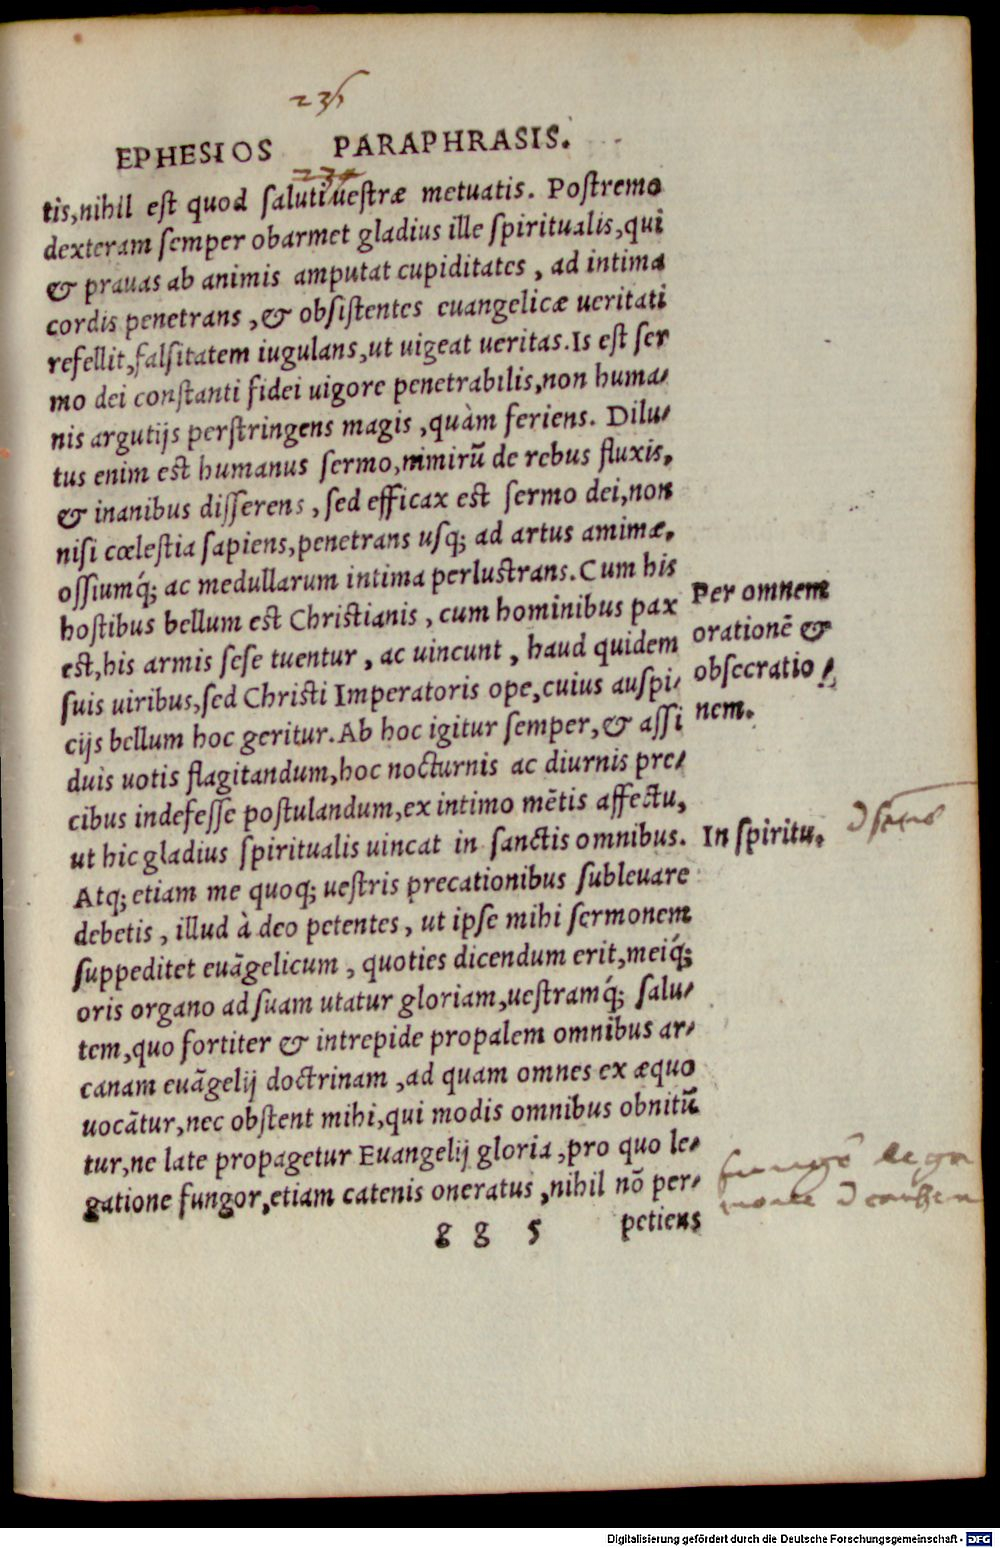 235
EPHESIOS PARAPHRASIS.
234
tis, nihil est quod saluti uestræ metuatis. Postremo
dexteram semper obarmet gladius ille spiritualis, qui
& prauas ab animis amputat cupiditates, ad intima
cordis penetrans, & obsistentes euangelicæ ueritati
refellit, falsitatem iugulans, ut uigeat ueritas. Is est ser
mo dei constanti fidei uigore penetrabilis, non huma-
nis argutijs perstringens magis, quàm feriens. Dilu-
tus enim est humanus sermo, nimirũ de rebus fluxis,
& inanibus disserens, sed efficax est sermo dei, non
nisi cœlestia sapiens, penetrans usq; ad artus amimæ,
ossiumq́; ac medullarum intima perlustrans. Cum his
hostibus bellum est Christianis, cum hominibus pax
est, his armis sese tuentur, ac uincunt, haud quidem
suis uiribus, sed Christi Imperatoris ope, cuius auspi-
cijs bellum hoc geritur. Ab hoc igitur semper, & assi
duis uotis flagitandum, hoc nocturnis ac diurnis pre-
cibus indefesse postulandum, ex intimo mẽtis affectu,
ut hic gladius spiritualis uincat in sanctis omnibus.
Atq; etiam me quoq; uestris precationibus subleuare
debetis, illud à deo petentes, ut ipse mihi sermonem
suppeditet euãgelicum, quoties dicendum erit, meiq́;
oris organo ad suam utatur gloriam, uestramq́; salu-
tem, quo fortiter & intrepide propalem omnibus ar-
canam euãgelij doctrinam, ad quam omnes ex æquo
uocãtur, nec obstent mihi, qui modis omnibus obnitũ
tur, ne late propagetur Euangelij gloria, pro quo le-
gatione fungor, etiam catenis oneratus, nihil nõ per-
gg 5 petiens
Per omnem
orationẽ &
obsecratio
nem.
In spiritu.